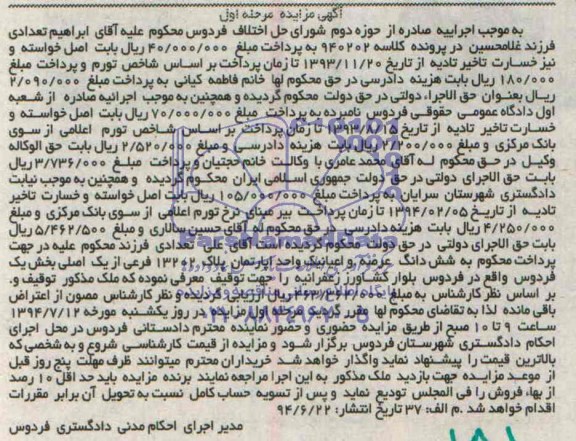 آگهی مزایده مرحله اول
به موجب اجراییه صادره از حوزه دوم شورای حل اختلاف فردوس محکوم علیه آقای ابراهیم تعدادی
فرزند غلامحسین در پرونده کلاسه ۹۴۰۲۰۲ به پرداخت مبلغ ۴۰/۰۰۰/۰۰۰ ریال بابت اصل خواسته و
نیز خسارت تاخیر تادیه از تاریخ ۱۳۹۳/۱۱/۲۰ تا زمان پرداخت بر اساس شاخص تورم و پرداخت مبلغ
۱۸۰/۰۰۰ ریال بابت هزینه دادرسی در حق محکوم لها خانم فاطمه کیانی به پرداخت مبلغ ۲/۰۹۰/۰۰۰
ریال بعنوان حق الاجراء دولتی در حق دولت محکوم گردیده و همچنین به موجب اجرائیه صادره از شعبه
اول دادگاه عمومی حقوقی فردوس نامبرده به پرداخت مبلغ ۷۰/۰۰۰/۰۰۰ ریال بابت اصل خواسته و
خسارت تاخیر تادیه از تاریخ تا زمان پرداخت بر اساس شاخص تورم اعلامی از سوی
بانک مرکزی و مبلغ ۲/۲۰۰/۰۰۰ ریال بابت هزینه دادرسی و مبلغ ۲/۵۲۰/۰۰۰ ریال بابت حق الوکاله
وکیل در حق محکوم له آقای محمد عامری با وکالت خانم حجتیان و پرداخت مبلغ ۳/۷۳۶/۰۰۰ ریال
بابت حق الاجرای دولتی در حق دولت جمهوری اسلامی ایران محکوم گردیده و همچنین به موجب نیابت
دادگستری شهرستان سرایان به پرداخت مبلغ ۱۰۵/۰۰۰/۰۰۰ ریال بابت اصل خواسته و خسارت تاخیر
تادیه از تاریخ ۱۳۹۴/۰۲/۰۵ تا زمان پرداخت بر مبنای نرخ تورم اعلامی از سوی بانک مرکزی و مبلغ
۴/۲۵۰/۰۰۰ ریال بابت هزینه دادرسی در حق محکوم له آقای حسین سالاری و مبلغ ۵/۴۶۲/۵۰۰ ریال
بابت حق الاجرای دولتی در حق دولت محکوم گردیده است آقای علی تعدادی فرزند محکوم علیه در جهت
پرداخت محکوم به شش دانگ عرصه و اعیان یک واحد آپارتمان پلاک ۱۳۲۶۲ فرعی از یک اصلی بخش یک
فردوس واقع در فردوس بلوار کشاورز زعفرانیه را جهت توقیف معرفی نموده که ملک مذکور توقیف و،
بر اساس نظر کارشناس به مبلغ ریال ارزیابی گردیده و نظر کارشناس مصون از اعتراض
باقی مانده لذا به تقاضای محکوم لها مقرر گردید مرحله اول مزایده در روز یکشنبه مورخه ۱۳۹۴/۷/۱۲
ساعت ۹ تا ۱۰ صبح از طریق مزایده حضوری و حضور نماینده محترم دادستانی فردوس در محل اجرای
احکام دادگستری شهرستان فردوس برگزار شود و مزایده از قیمت کارشناسی شروع و به شخصی که
بالاترین قیمت را پیشنهاد نماید واگذار خواهد شد خریداران محترم میتوانند ظرف مهلت پنج روز قبل
از موعد مزایده جهت بازدید ملک مذکور به این اجرا مراجعه نمایند برنده مزایده باید حد اقل ۱۰ رصد
از بها، فروش را فی المجلس تودیع نماید و پس از تسویه حساب کامل نسبت به تحویل آن برابر مقررات
اقدام خواهد شد .م الف: ۳۷ تاریخ انتشار: ۹۴/۶/۲۲
مدیر اجرای احکام مدنی دادگستری فردوس